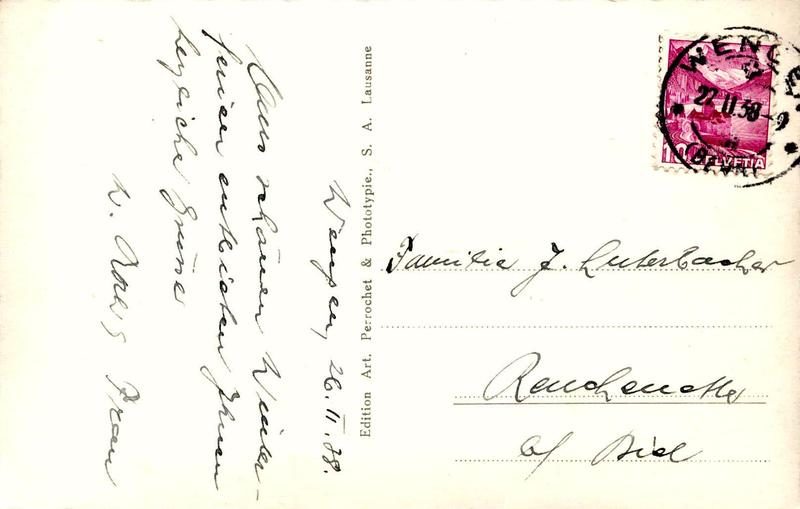 Wengen, 26.II.38.
Aus schönen Winter-
ferien entbieten Ihnen
herzliche Grüsse
u. Frau
Edition Art. Perrochet & Phototypie., S. A. Lausanne
WENGEN
27.II.38-9
(BERN)
10 HELVETIA
Familie J. Luterbacher
Reuchenette
b/ Biel